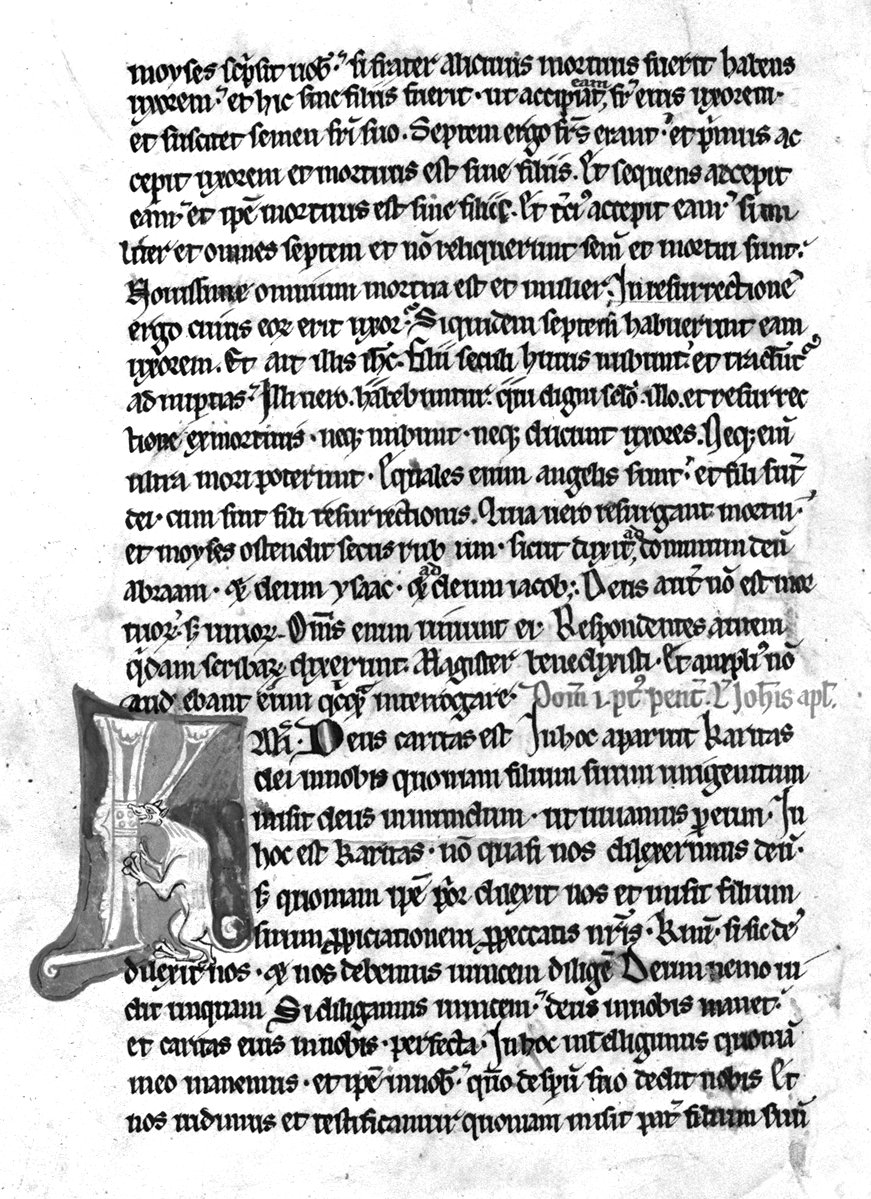 moyses scpsit nob. si frater alicuius mortuus fuerit habens
uxorem. et hic sine filiis fuerit. ut accipiat eam fr eius uxorem.
et suscitet semen fri suo. Septem ergo frs erant. et pmus ac
cepit uxorem et mortuus est sine filiis. Et sequens accepit
eam. et ipe mortuus est sine filiis. Et tci accepit eam. simi
liter et omnes septem et no reliquerunt sem et mortui sunt.
Nouissime omnium mortua est et mulier. In resurrectione
ergo cuius eor erit uxor. Siquidem septem habuerunt eam
uxorem. Et ait illis ihc. Filii seculi huius nubunt. et tradunt
ad nuptias. Illi uero habebuntur qui digni sclo illo. et resurrec
tione ex mortuis. neq; nubunt. neq; ducunt uxores. Neq; eni
ultra mori poterunt. Equales enim angelis sunt. et fili sut
dei. cum sint fili resurrectionis. Quia uero resurgant mortui.
et moyses ostendit secus rub um. sicut dixit ad dominum deu
abraam. & deum ysaac. & ad deum iacob. Deus aut no est mor
tuor. s; uiuor. Oms enim uiuunt ei. Respondentes autem
qdam scribar dixerunt. Magister benedixisti. Et ampli no
aud ebant eum qcq interrogare. Dom i. pt pent. L Johis apl.
Deus caritas est In hoc aparuit karitas
dei in nobis quoniam filium suum unigenitum
misit deus in mundum. ut uiuamus p eum. In
hoc est karitas. no quasi nos dilexerimus deu.
s; quoniam ipe por dilexit nos et misit filium
suum ppiciationem p peccatis nris. Kmi. si sic de
dilexit nos. & nos debemus inuicem dilige Deum nemo ui
dit unquam Si diligamus inuicem. deus in nobis manet.
et caritas eius in nobis. perfecta. In hoc intelligimus quonia
in eo manemus. et ipe in nob. qno de spu suo dedit nobis Et
nos uidimus et testificamur quoniam misit pat filium suu